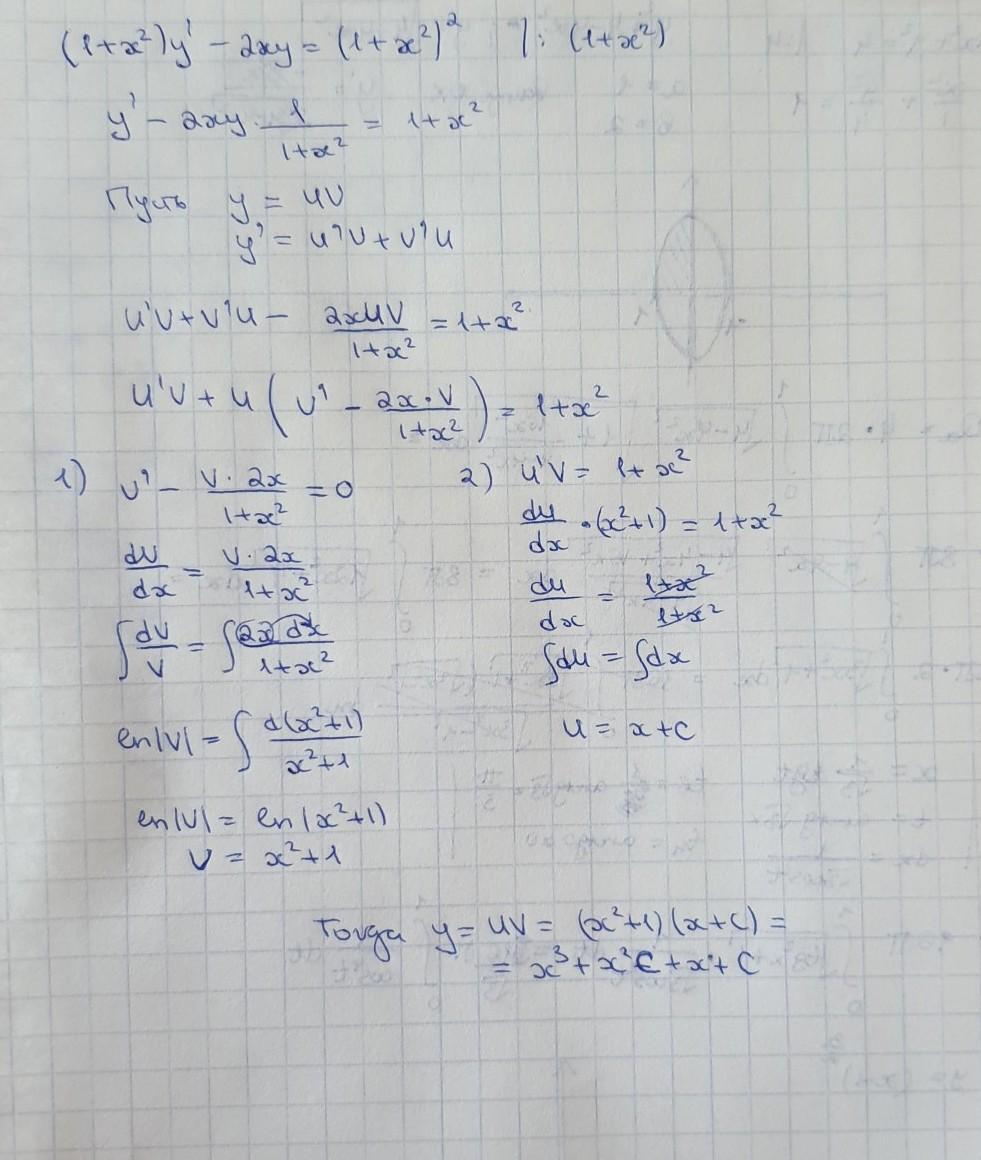 (1+x²)y' - 2xy = (1+x²)² | : (1+x²)
y' - 2xy · 1/(1+x²) = 1+x²
Пусть y = uv
y' = u'v + v'u
u'v + v'u - 2xuv/(1+x²) = 1+x²
u'v + u(v' - 2x·v/(1+x²)) = 1+x²
1) v' - v·2x/(1+x²) = 0
dv/dx = v·2x/(1+x²)
∫dv/v = ∫2x dx/(1+x²)
ln|v| = ∫d(x²+1)/(x²+1)
ln|v| = ln(x²+1)
v = x²+1
2) u'v = 1+x²
du/dx · (x²+1) = 1+x²
du/dx = (1+x²)/(1+x²)
∫du = ∫dx
u = x+c
Тогда y = uv = (x²+1)(x+c) =
= x³+x²C+x+C